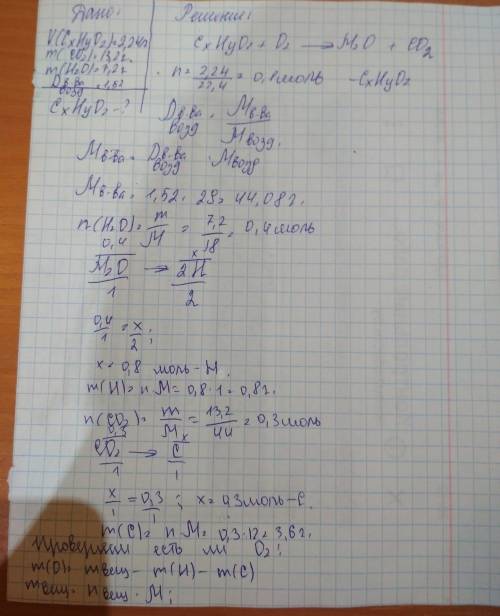 Дано:
V(CxHyO2)=2,24л
m(CO2)=13,2г.
m(H2O)=7,2г
Dв-ва возд = 1,52
CxHyO2-?
Решение:
CxHyO2 + O2 → H2O + CO2
n = 2,24/22,4 = 0,1 моль - CxHyO2
Dв-ва возд = Mв-ва / Mвозд.
Mв-ва = Dв-ва возд · Mвозд
Mв-ва = 1,52 · 29 = 44,08 г.
n(H2O) = m/M = 7,2/18 = 0,4 моль
0,4 x
H2O → 2H
1 2
0,4/1 = x/2;
x = 0,8 моль - H.
m(H) = n M = 0,8·1 = 0,8г.
n(CO2) = m/M = 13,2/44 = 0,3 моль
0,3 x
CO2 → C
1 1
x/1 = 0,3/1; x = 0,3 моль - C.
m(C) = n M = 0,3·12 = 3,6г.
Проверим есть ли O2:
m(O) = mвещ - m(H) - m(C)
mвещ = nвещ · M;